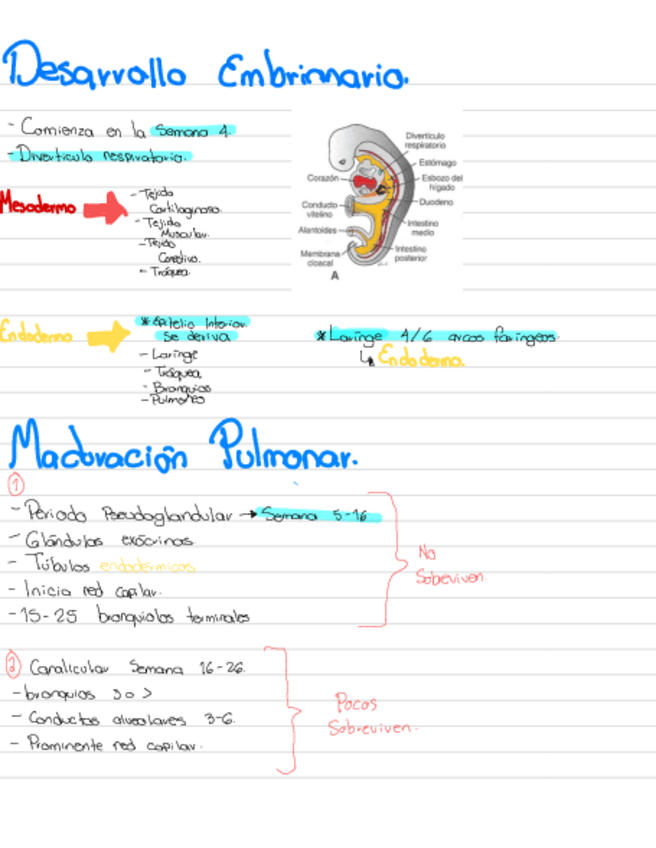 Desarrollo Embrionario.
- Comienza en la Semana 4.
- Diverticulo respiratorio.
Mesodermo
- Tejido
Cartilaginoso.
- Tejido
Muscular.
- Tejido
Conectivo.
- Tráquea.
Divertículo
respiratorio
Estómago
Corazón
Esbozo del
hígado
Duodeno
Conducto
vitelino
Intestino
medio
Alantoides
Intestino
posterior
Membrana
cloacal
A
Endodermo
* Epitelio Interior.
Se deriva
- Laringe
- Tráquea
- Bronquios
- Pulmones
* Laringe 4/6 arcos faríngeos.
↳ Endodermo.
Maduración Pulmonar.
①
- Periodo Pseudoglandular → Semana 5-16
- Glándulas exócrinas
- Túbulos endodérmicos
- Inicia red capilar.
- 15-25 bronquiolos terminales
No
Sobeviven.
② Canalicular Semana 16-26.
- bronquios 3 o >
- Conductos alveolares 3-6.
- Prominente red capilar.
Pocos
Sobreviven.